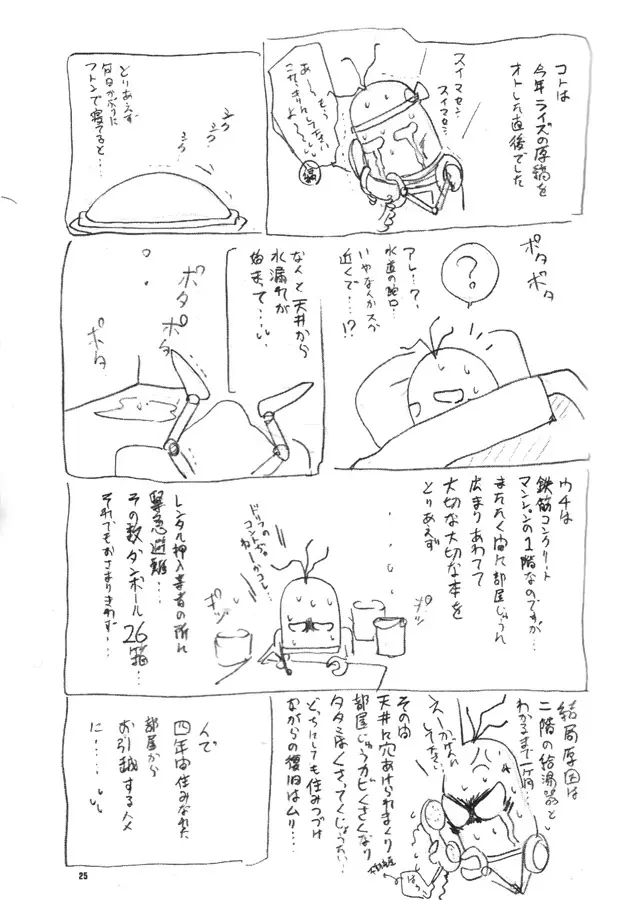 コトは
今年ライズの原稿を
オトした直後でした
スイマセン
スイマセン
あ〜〜もう
よ〜〜
編
とりあえず
フトンで寝てると…
ポタ
ポタ
？
アレ…？
水道の蛇口…
いやなんかスガ
近くで…!?
なんと天井から
水漏れが
始まって……
ポタ
ポタ
ポタ
ポタ
ウチは
鉄筋コンクリート
マンションの1階なのですが…
またたく間に部屋じゅうに
広まりあわてて
大切な大切な本を
とりあえず
ポツ
ポツ
レンタル押入業者の所に
緊急避難…
その数ダンボール26箱…
それでもおさまりきれず…
結局原因は
二階の給湯器と
わかるまで一ヶ月…
その間
天井に穴あけられまくり
部屋じゅうカビくさくなり
タタミはくさってくしょうだい…
どっちにしても住みつづけ
ながらの復旧はムリ…
んで
四年間住みなれた
部屋から
お引越するハメ
に……
25